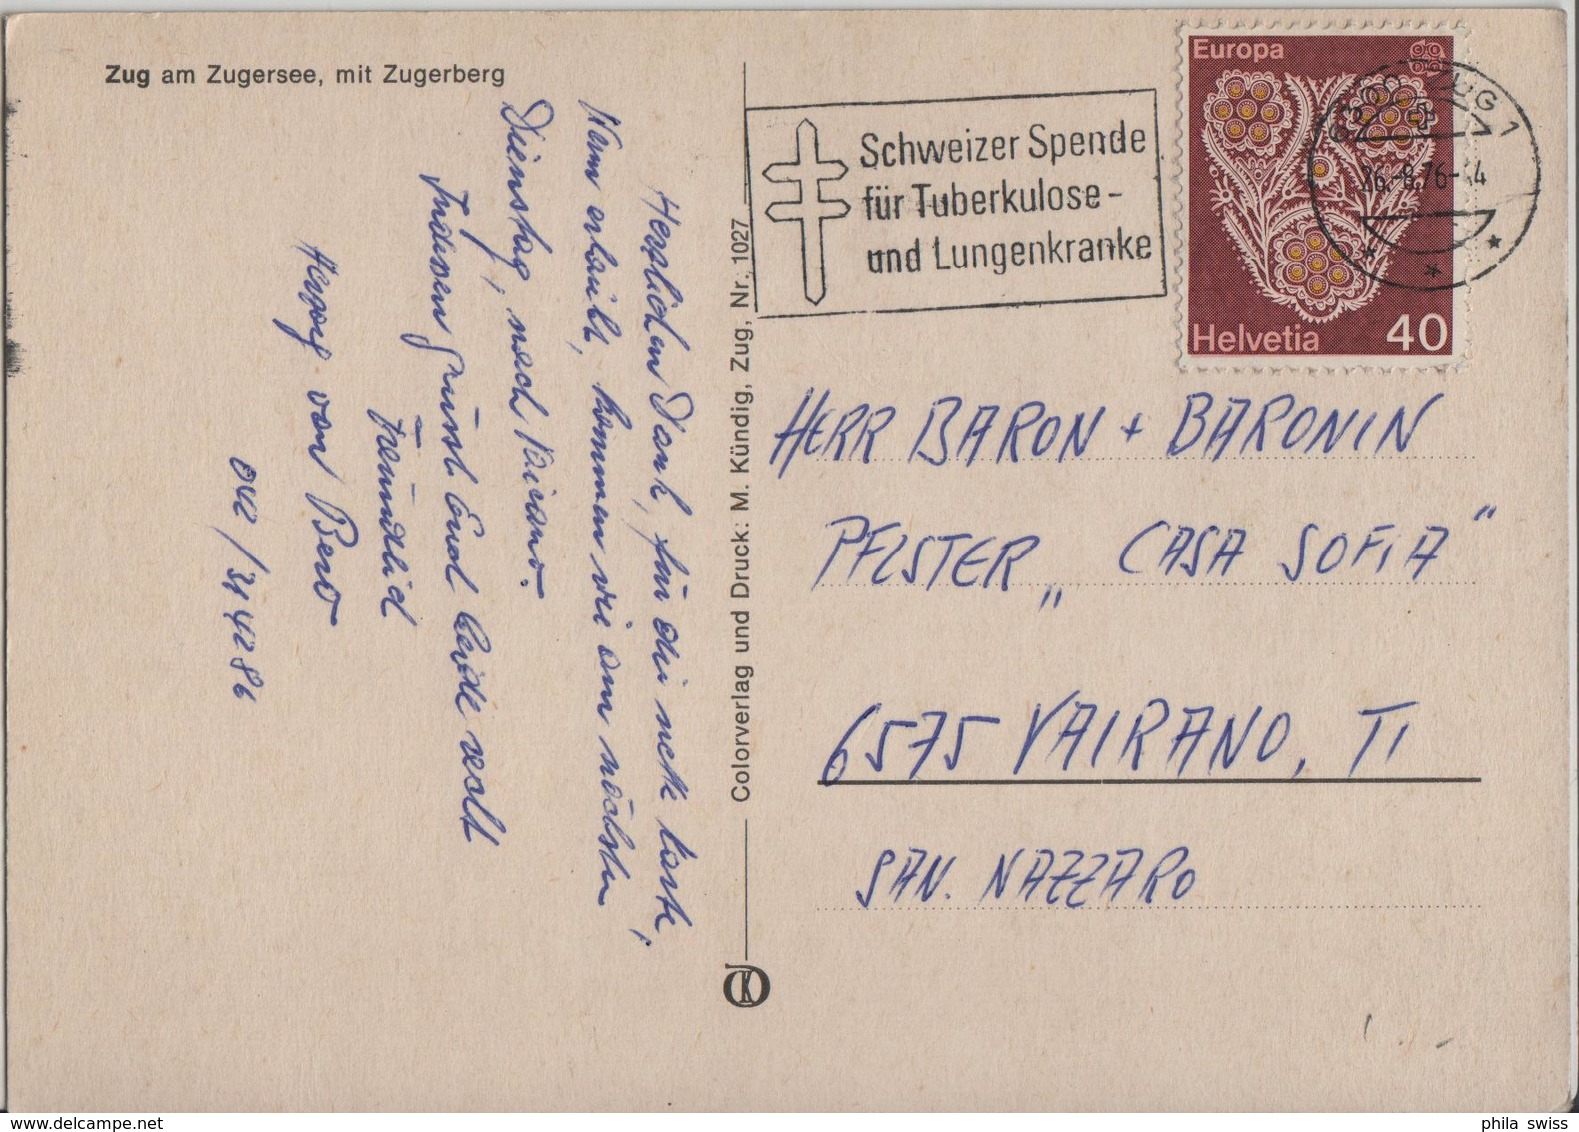 Zug am Zugersee, mit Zugerberg
Herzlichen Dank, für die nette Karte,
Wenn erlaubt, kommen wir am nächsten
Dienstag, nach Vairano.
Indessen grüsst Euch beide recht
freundlich
von Bero
042 / 31 42 86
Colorverlag und Druck: M. Kündig, Zug, Nr. 1027
Schweizer Spende
für Tuberkulose-
und Lungenkranke
Europa
Helvetia 40
6300 ZUG 1
26.-8.76-14
HERR BARON + BARONIN
PFISTER „ CASA SOFIA "
6575 VAIRANO, TI
SAN. NAZZARO
phila swiss